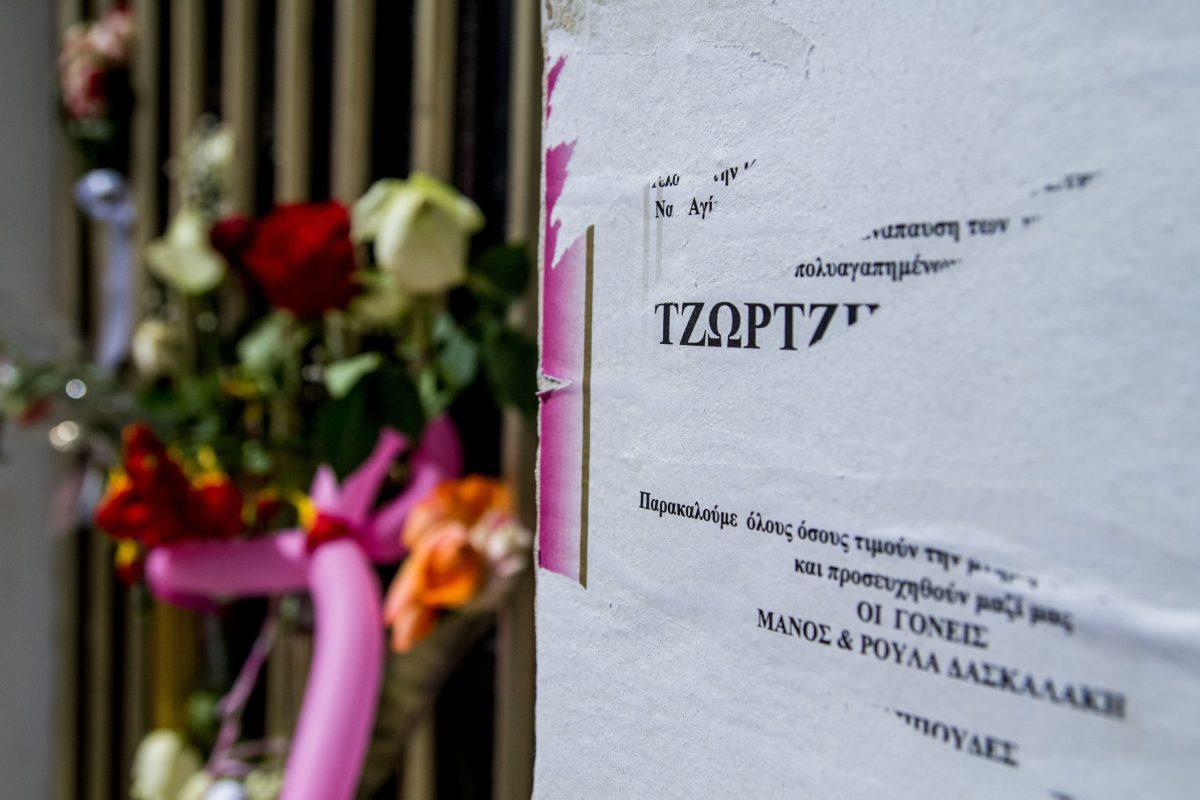 Να Αγί
νάπαυση των
πολυαγαπημένου
ΤΖΩΡΤΖΙ
Παρακαλούμε όλους όσους τιμούν την
και προσευχηθούν μαζί μας
ΟΙ ΓΟΝΕΙΣ
ΜΑΝΟΣ & ΡΟΥΛΑ ΔΑΣΚΑΛΑΚΗ
ΠΠΟΥΔΕΣ